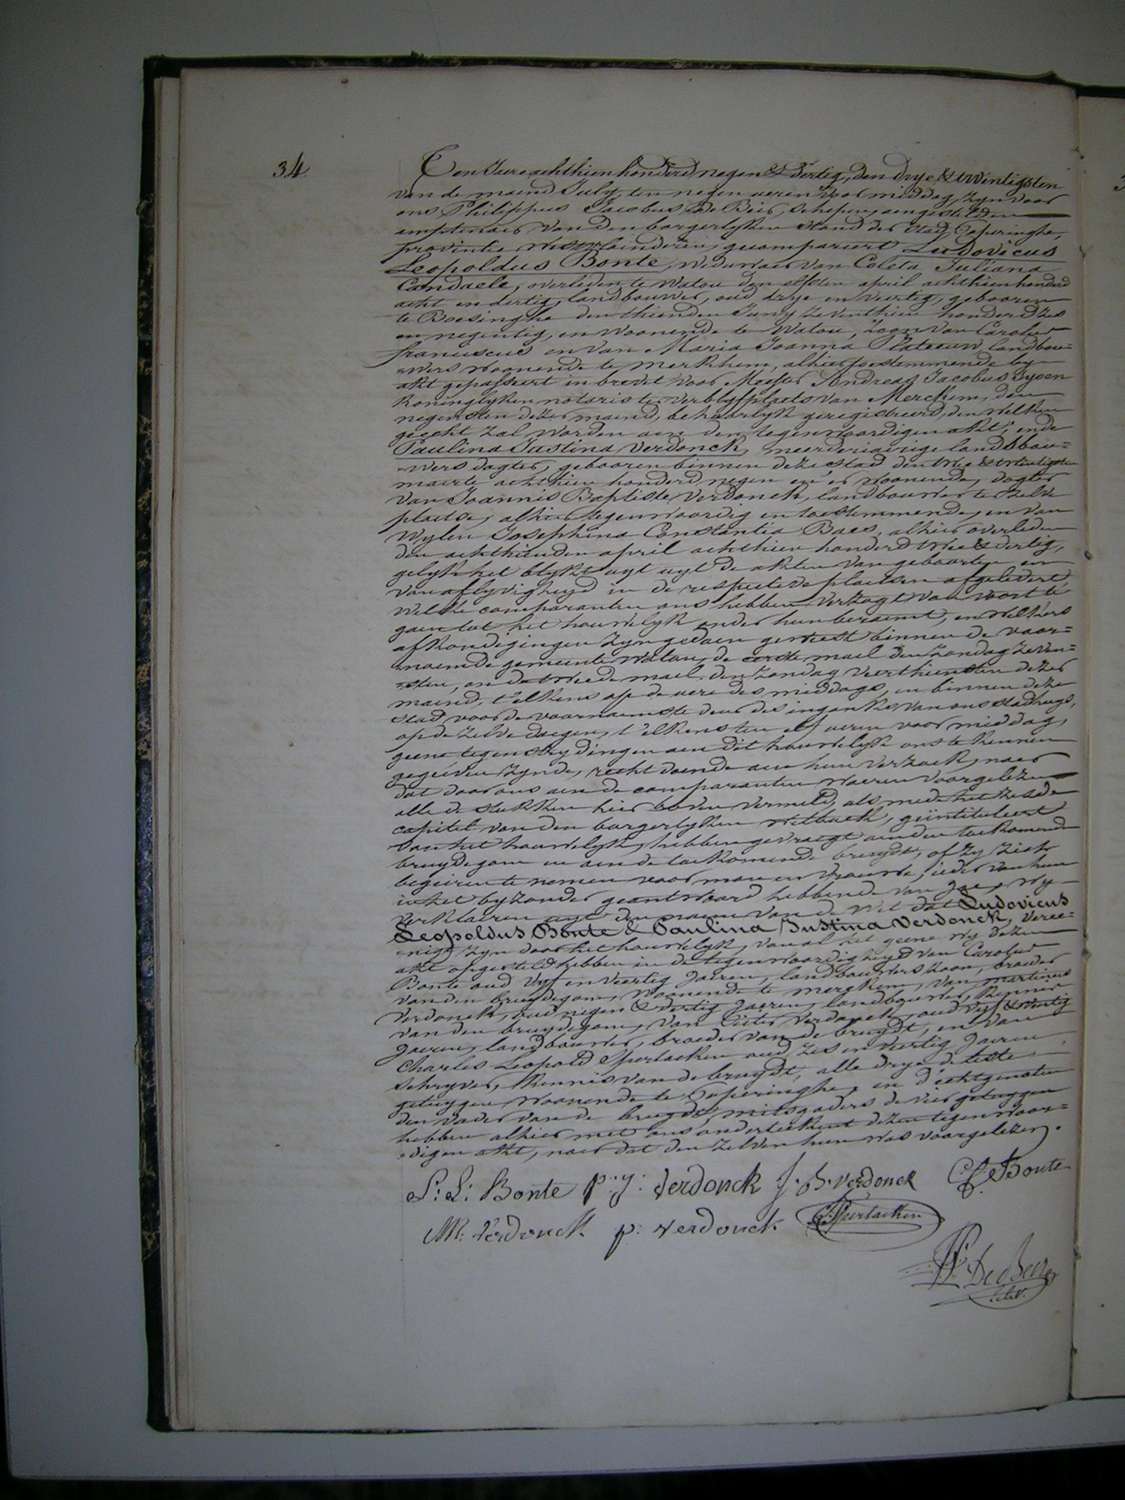 34
Ten Jaere achthien honderd negen & Dertig, den drye & twintigsten
van de maend July, ten negen ueren voor middag, zyn voor
ons Philippus Jacobus De Beir, schepen, aengestelden
amptenaer van den borgerlyken stand der stad Poperinghe,
provintie Westvlaenderen, gecompareert Ludovicus
Leopoldus Bonte, weduwaer van Coleta Juliana
Candaele, overleden te Watou den elfsten april achthien honderd
acht en dertig, landbouwer, oud drye en veertig, gebooren
te Boesinghe den thienden Juny zeventhien honderd zes
en negentig, en woonende te Watou, zoon van Carolus
franciscus en van Maria Joanna Patteeuw, landbou-
wers woonende te Merkhem, alhier toestemmende by
akt gepasseert in brevet voor Meester Andreas Jacobus Syoen
koninglyken notaris te verblyfplaets van Merckem, den
negensten dezer maend, behoorlyk geregistreerd, den welken
gehecht zal worden aen den tegenwoordigen akt; ende
Paulina Justina Verdonck, meerderjaerige landsbou-
wers dogter, gebooren binnen deze stad den twee & twintigsten
maerte achthien honderd negen en er woonende, dogter
van Joannis Baptiste Verdonck, landbouwer te zelve
plaetse, alhier tegenwoordig en toestemmende, en van
Wylen Josephina Constantia Baes, alhier overleden
den achthienden april achthien honderd twee & dertig,
gelyk het blykt uyt de akten van geboorten en
van aflyvigheyd in de respective plaetsen afgelevert
Welke comparanten ons hebben verzogt van voort te
gaen tot het houwelyk onder hun beraemt, en welkers
afkondigingen zyn gedaen geweest binnen de voor-
noemde gemeente Watou, de eerste mael den zondag zeven-
sten, en de tweede mael den zondag veerthiensten dezer
maend, t'elkens op de uere des middags, en binnen deze
stad voor de voornaemste deur des ingank's van ons stadhuys,
op de zelve dagen, t'elkens ten elf ueren voor middag,
geene tegenstrydingen aen dit houwelyk ons te kennen
gegeven zynde, recht doende aen hun verzoek, naer
dat door ons aen de comparanten waeren voorgelezen
alle de stukken hier boven vermeld, als mede het zesde
capittel van den borgerlyken wetboek, geïntituleert
van het houwelyk, hebben gevraegt aen den toekomende
bruydegom en aen de toekomende bruydt, of zy zich
begeiren te nemen voor man en vrouwe; ieder van hun
in het byzonder geantwoord hebbende van Jae, wy
verklaeren uyt den naem van de Wet dat Ludovicus
Leopoldus Bonte & Paulina Justina Verdonck, veree-
nigt zyn door het houwelyk, van al het geene wy dezen
akt opgesteld hebben in de tegenwoordigheyd van Carolus
Bonte oud vyf en veertig Jaeren, landbouwers zoon, broeder
van den bruydegom, woonende te Merckem, van martinus
Verdonck, oud negen & dertig Jaeren, landbouwer, kennis
van den bruydegom, van Pieter Verdonck, oud vyf & dertig
Jaeren, landbouwer, broeder van de bruydt, en van
Charles Leopold Sperlaeken oud zes en veertig Jaeren,
schryver, kennis van de bruydt, alle drye de leste
getuygen woonende te Poperinghe, en d'echtgenoten
den vader van de bruydt, mitsgaders de vier getuygen
hebben alhier met ons onderteekent dezen tegenwoor-
digen akt, naer dat den zelven hun was voorgelezen.
L: L: Bonte p: J: Verdonck J. B. Verdonck C F Bonte
M: Verdonck p: verdonck Sperlaeken
Ph. De Beir